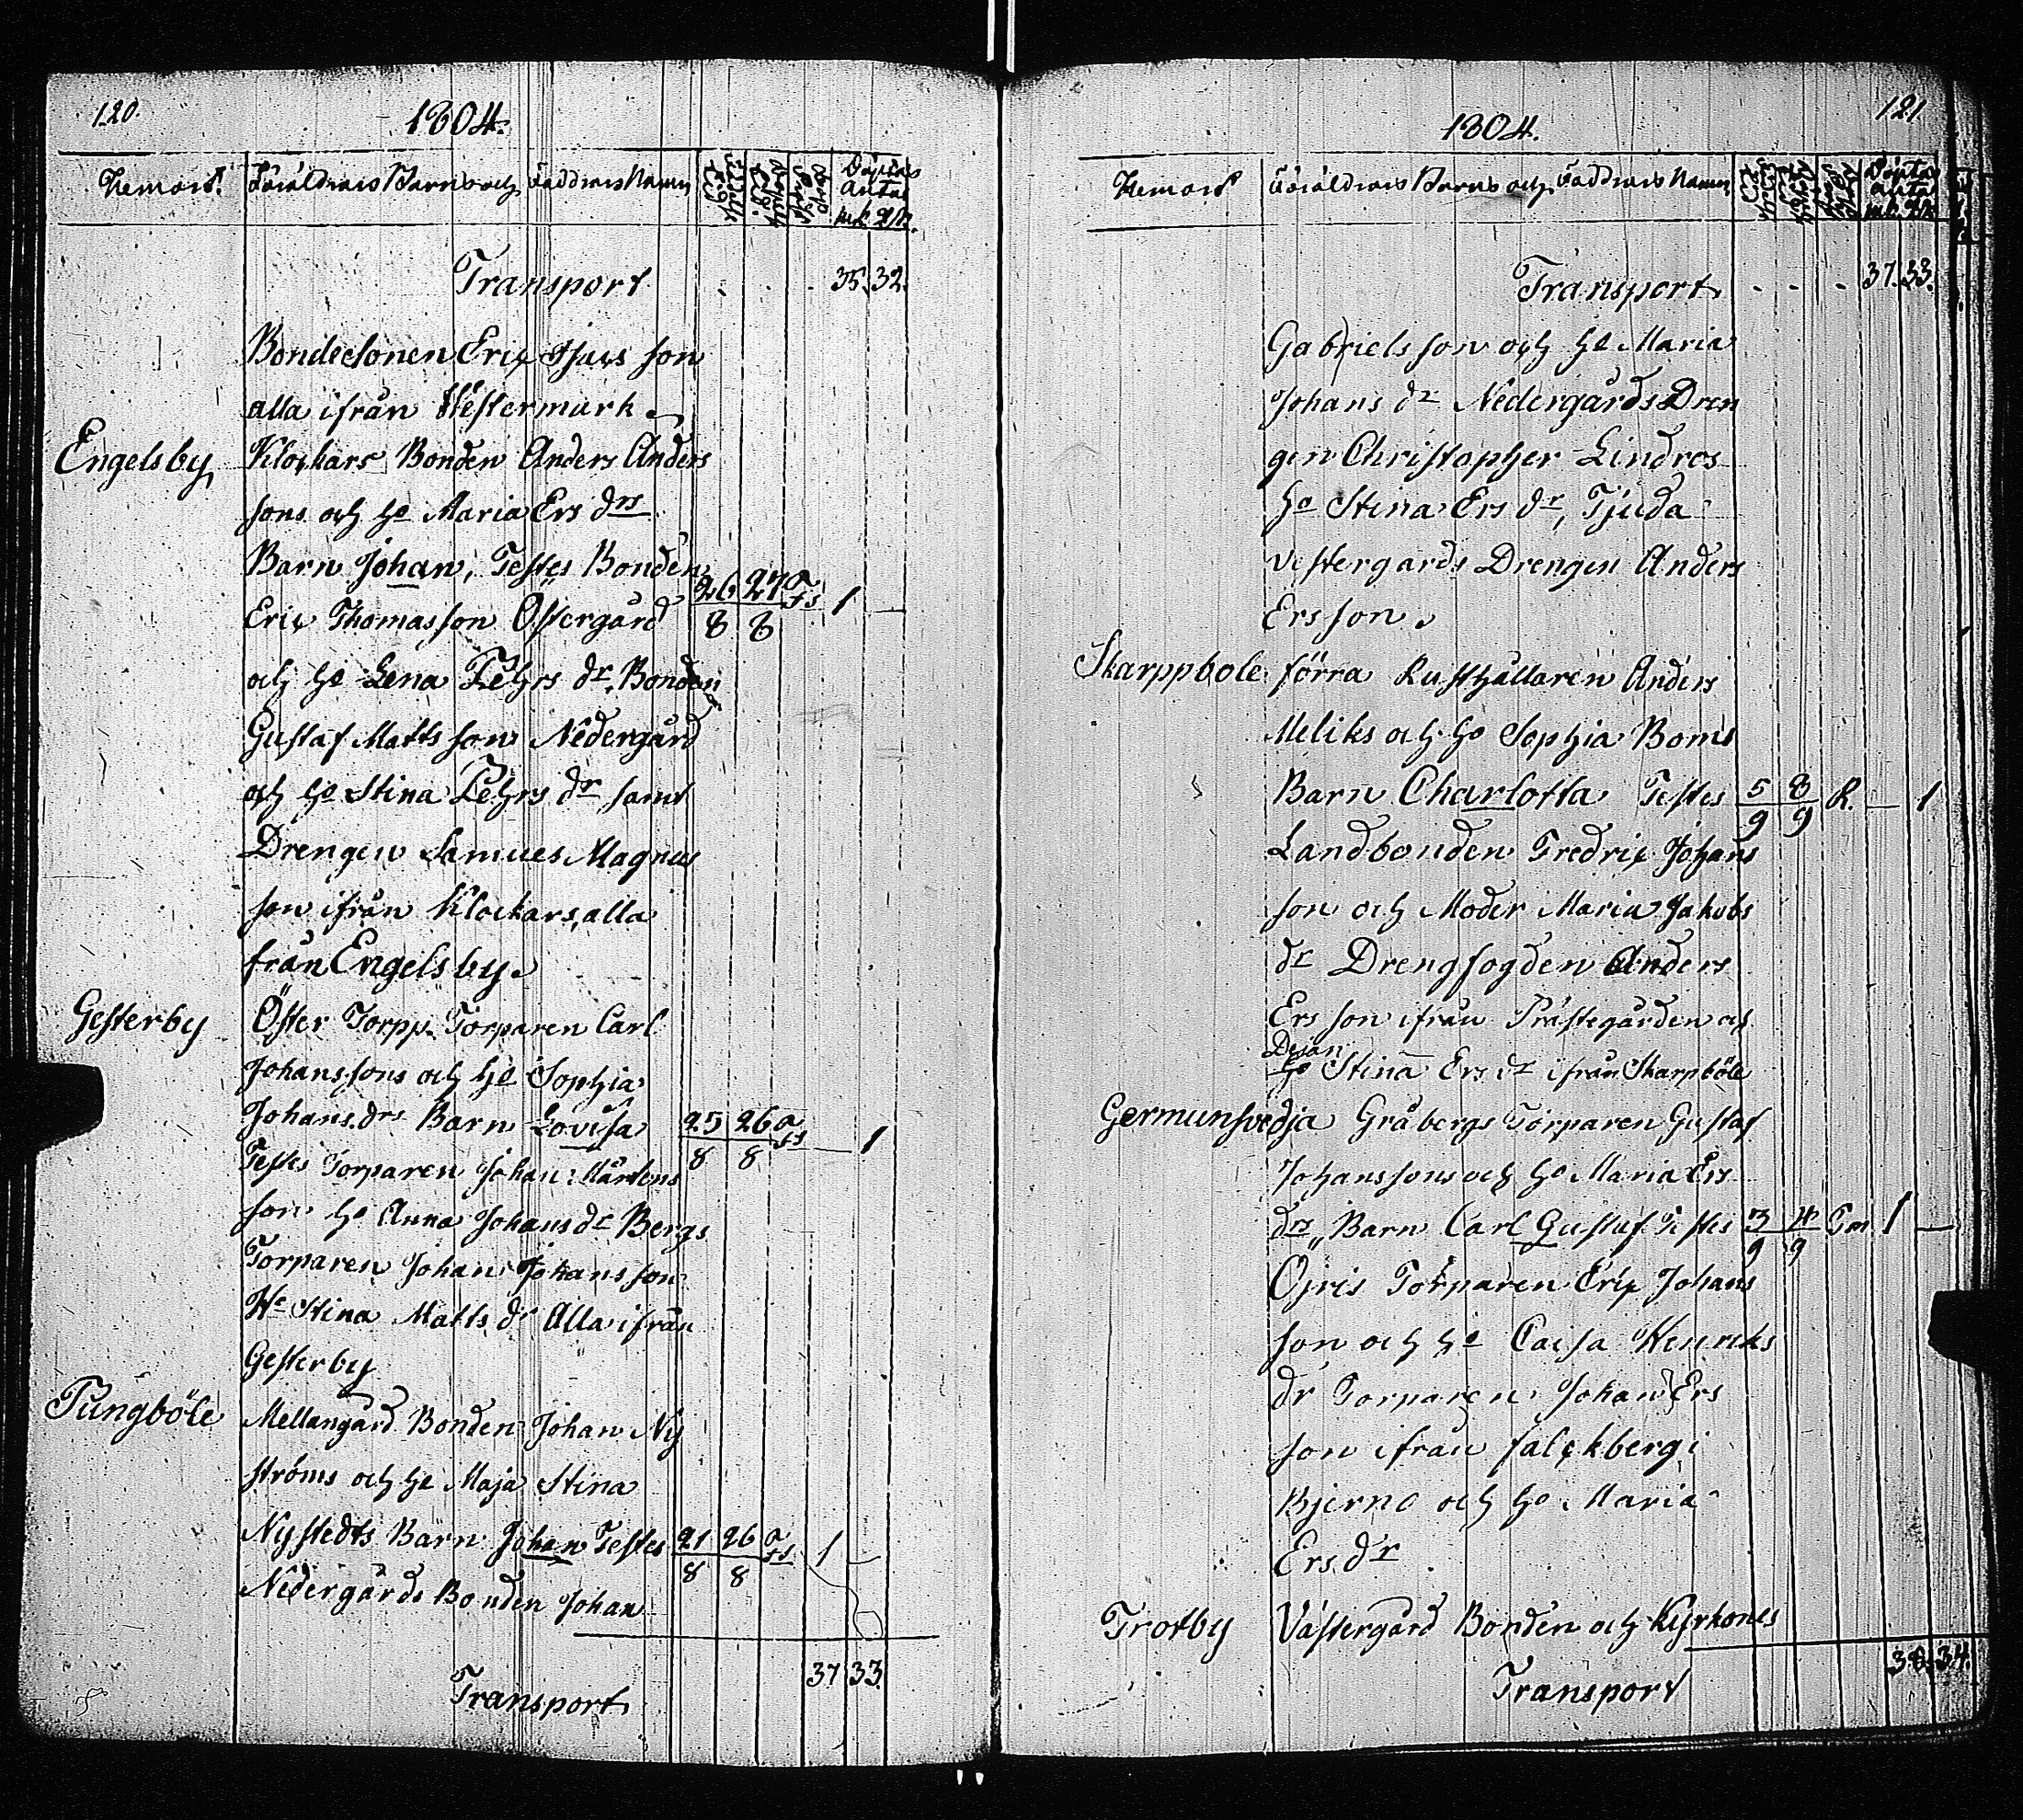 120.
1804.
Hemort. Föräldrars Barns och Faddrars Namn Döptas Antal mk. qvk.
Transport . . . 35. 32.
Bondesonen Eric Isacs son
alla ifrån Westermark.
Engelsby Klockars Bonden Anders Anders
sons och ho Maria Ers drs
Barn Johan, Testes Bonden
Eric Thomasson Östergård 26/8 27/8 1 —
och ho Lena Zehrs dr, Bonden
Gustaf Mattsson Nedergård
och ho Stina Zehrs dr samt
Drengen Samuel Magnus
son ifrån Klockars, alla
från Engelsby.
Gesterby Öster Torpp. Torparen Carl
Johanssons och ho Sophia
Johans. drs Barn Lovisa 25/8 26/8 — 1
Testes Torparen Johan Mårtens
son ho Anna Johans dr Bergs
Torparen Johan Johansson
Ho Stina Matts dr Alla ifrån
Gesterby
Pungböle Mellangård Bonden Johan Ny
ströms och ho Maja Stina
Nystedts Barn Johan Testes 21/8 26/8 1 —
Nedergårds Bonden Johan
37 33.
Transport
121
1804.
Hemort Föräldrars Barns och Faddrars Namn Döptas antal mk. qvk.
Transport . . . 37. 33.
Gabriels son och ho Maria
Johans dr Nedergårds Dren
gen Christopher Lindros
ho Stina Ers dr, Tjuda
vestergards Drengen Anders
Ersson.
Skarppbole förra Rusthållaren Anders
Meliks och ho Sophia Boms
Barn Charlotta Testes 5/9 8/9 R. — 1
Landbonden Fredric Johans
son och Moder Maria Jakobs
dr Drengfogden Anders
Ersson ifrån Prästegården och
Dejan
ho Stina Ers dr ifrån Skarpböle
Germunsvedja Gråbergs Torparen Gustaf
Johanssons och ho Maria Ers
drs Barn Carl Gustaf Testes 3/9 4/9 Tm 1 —
Öjris Torparen Eric Johans
son och ho Caisa Henriks
dr Torparen Johan Ers
son ifrån falckberg i
Bjerno och ho Maria
Ers. dr
Trotby Västergård Bonden och Kyrkones
38. 34.
Transport